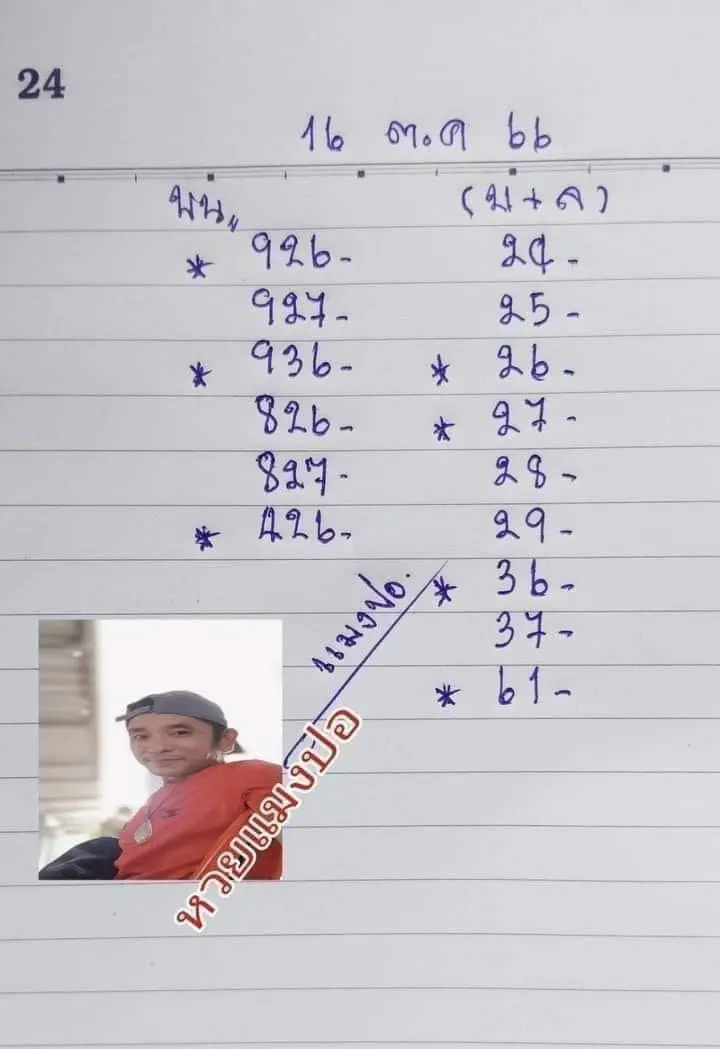 24
16 ต.ค 66
บน,, (บ+ล)
* 926- 24-
927- 25-
* 936- * 26-
826- * 27-
827- 28-
* 426- 29-
* 36-
37-
* 61-
แมงปอ.
หวยแมงปอ